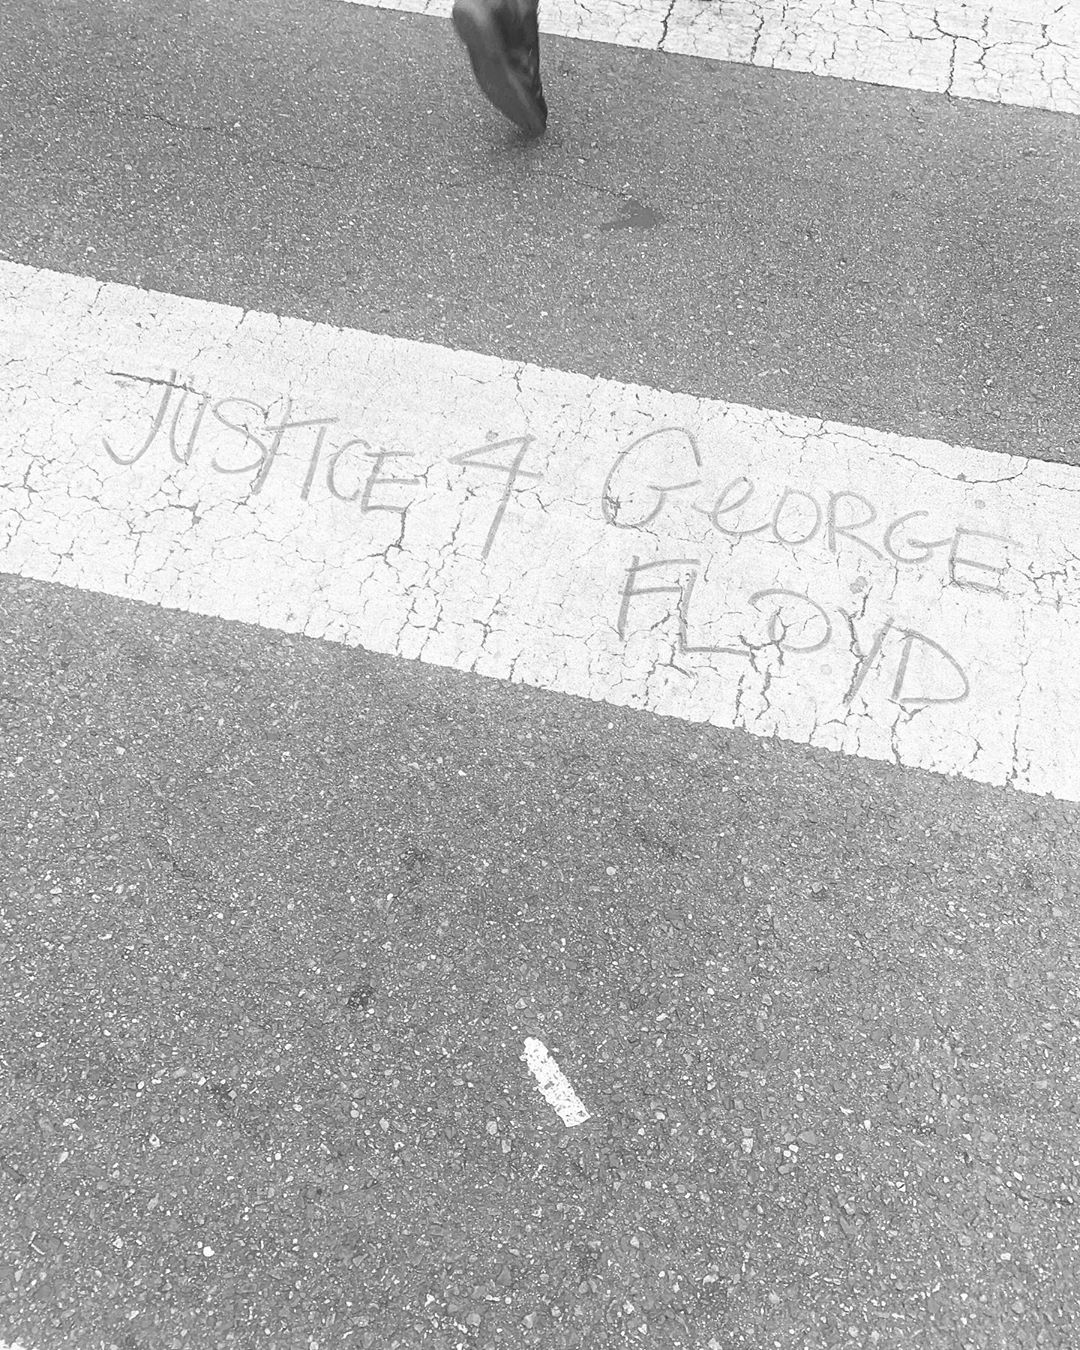 JUSTICE 4 GeORGE
FLOYD